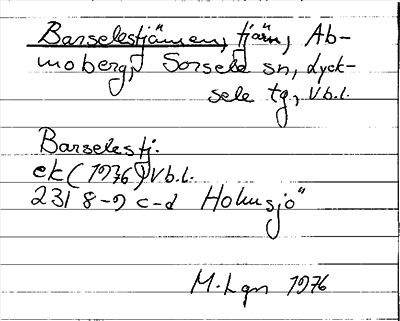 Barselestjärnen, tjärn, Ab-
moberg, Sorsele sn, Lyck-
sele tg, Vb.l.
Barselestj.
ek (1976) Vb.l.
231 8-9 c-d Holmsjö"
M. Lgn 1976